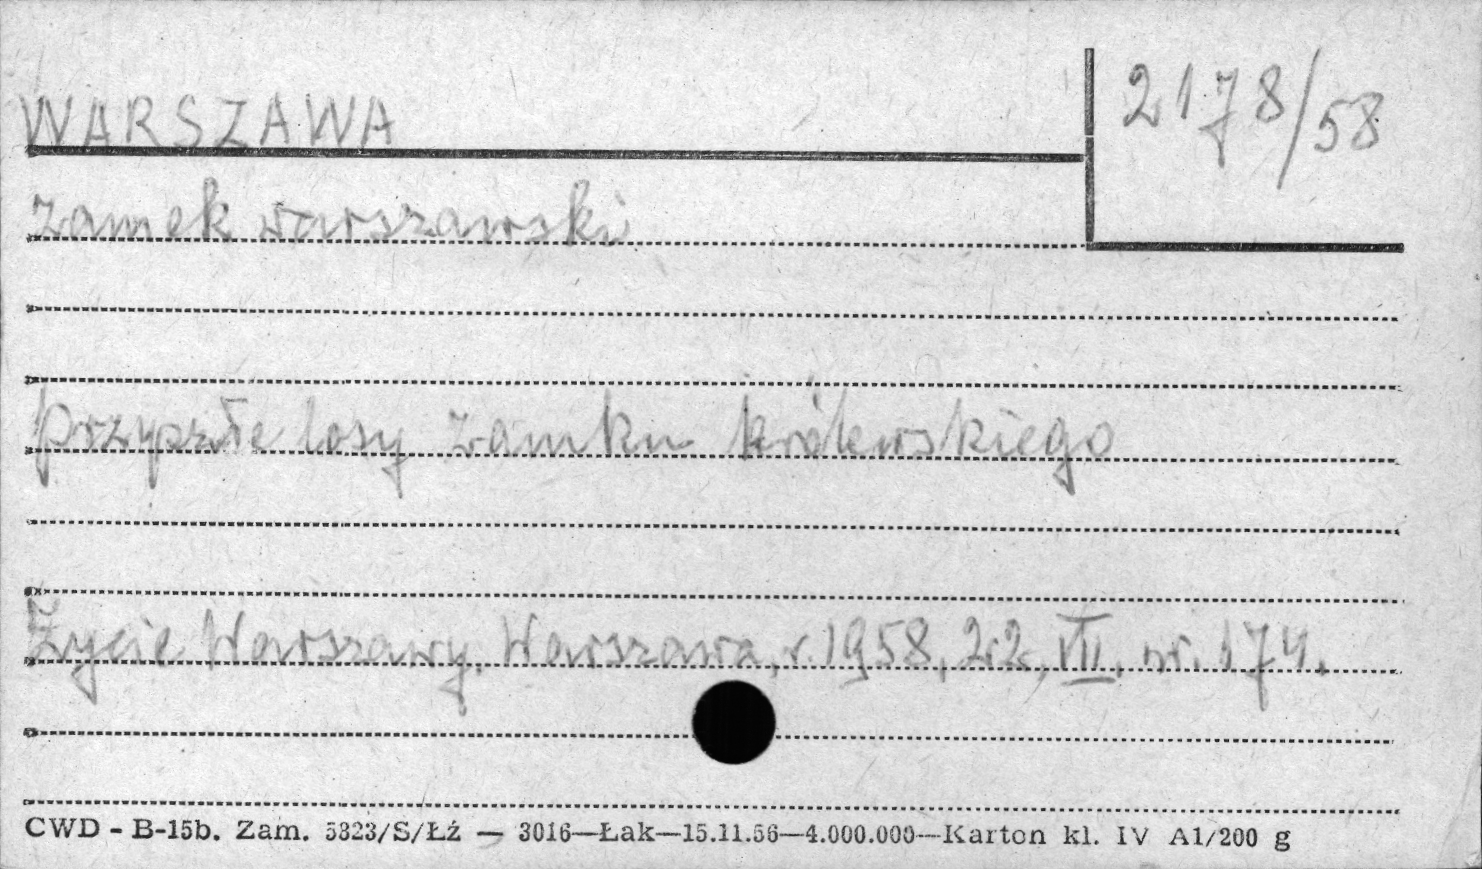 WARSZAWA
2178/58
zamek warszawski
przyszłe losy zamku królewskiego
Życie Warszawy. Warszawa, r. 1958, 22, VII, nr. 174.
CWD - B-15b. Zam. 5323/S/Łź — 3016—Łak—15.11.56—4.000.000—Karton kl. IV A1/200 g